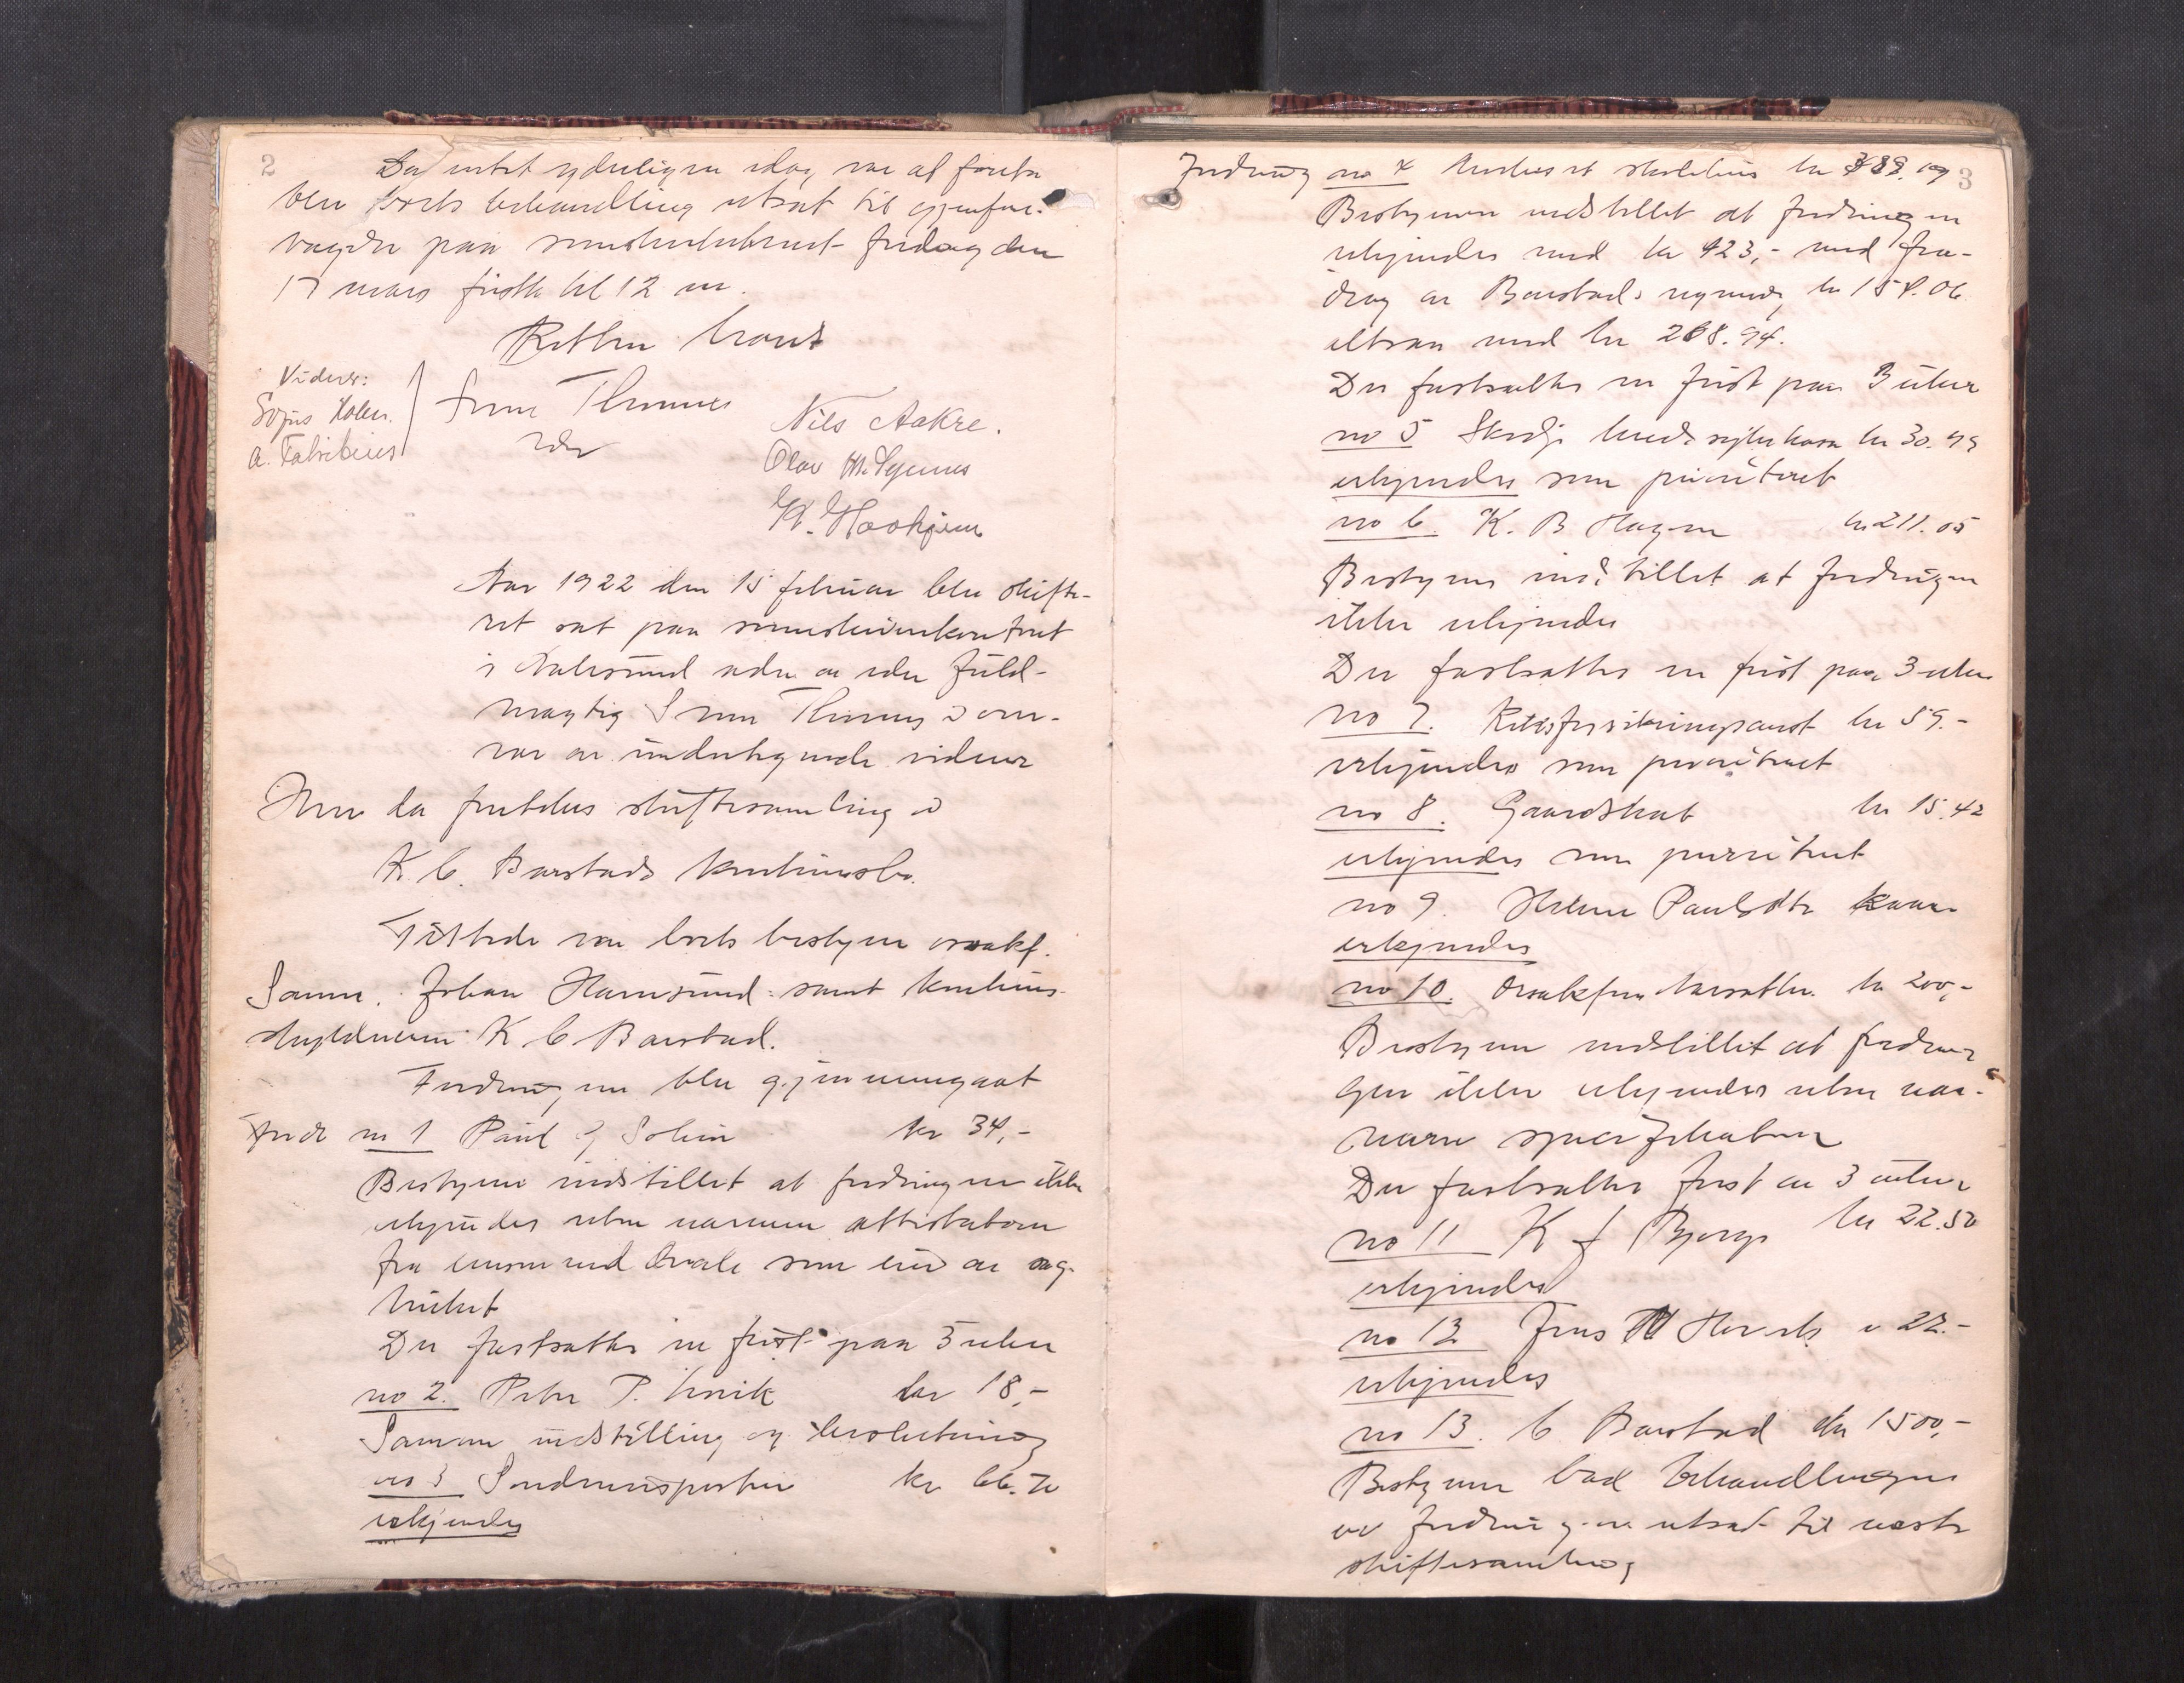 2
Da intet yderligere idag var at foreta
blev boets behandling utsat til gjenfore-
tagelse paa sorenskriverkontoret fredag den
17 mars førstk. kl 12 m.
Retten hævet
Vidner:
Sofus Holm.
A. Fabricius
Simon Thomas
Nils Aakre.
Olav M.
Aar 1922 den 15 februar blev skifte-
ret sat paa sorenskriverkontoret
i Aalesund adm av edsv fuld-
mægtig Simon Thomas i over-
vær av undertegnede vidner
Hvor da fortokes skiftesamling i
K. C. Barstads konkursbo.
Tilstede var boets bestyrer overretssakf.
Johan Hamsund samt konkurs-
skyldneren K C Barstad.
Fordringerne blev gjennemgaat
Fordr no 1 Paul J Solem kr 34,-
Bestyrer indstillet at fordringen ikke
erkjendes uten nærmere attestation
fra
Der fastsattes en frist paa 3 uker
no 2. Peter P. kr 18,-
Samme indstilling og beslutning
no 3 Sunnmørsposten kr 66.70
erkjendes
3
Fordring no 4 kr 388.
Bestyreren indstillet at fordringen
erkjendes med kr 423,- med fra-
drag av Barstads regning kr 154.06
altsaa med kr 268.94.
Der fastsattes en frist paa 3 uker
no 5 Skodje kreds sykekasse kr 30.49
erkjendes som prioritert
no 6. K. B Hagen kr 211.05
Bestyrer indstillet at fordringen
ikke erkjendes
Der fastsattes en frist paa 3 uker
no 7. Riksforsikringsanst kr 59.-
erkjendes som prioritert
no 8. Gaardskat kr 15.42
erkjendes som prioritert
no 9. Paulsdtr
erkjendes
no 10. kr 200,-
Bestyrer indstillet at fordrin-
gen ikke erkjendes uten nær-
mere specifikation
Der fastsattes frist av 3 uker
no 11 K J Bjørge kr 22.50
erkjendes
no 12 Jens 22.-
erkjendes
no 13. C Barstad kr 1500,-
Bestyrer bad behandlingen
av fordringen utsat til næste
skiftesamling